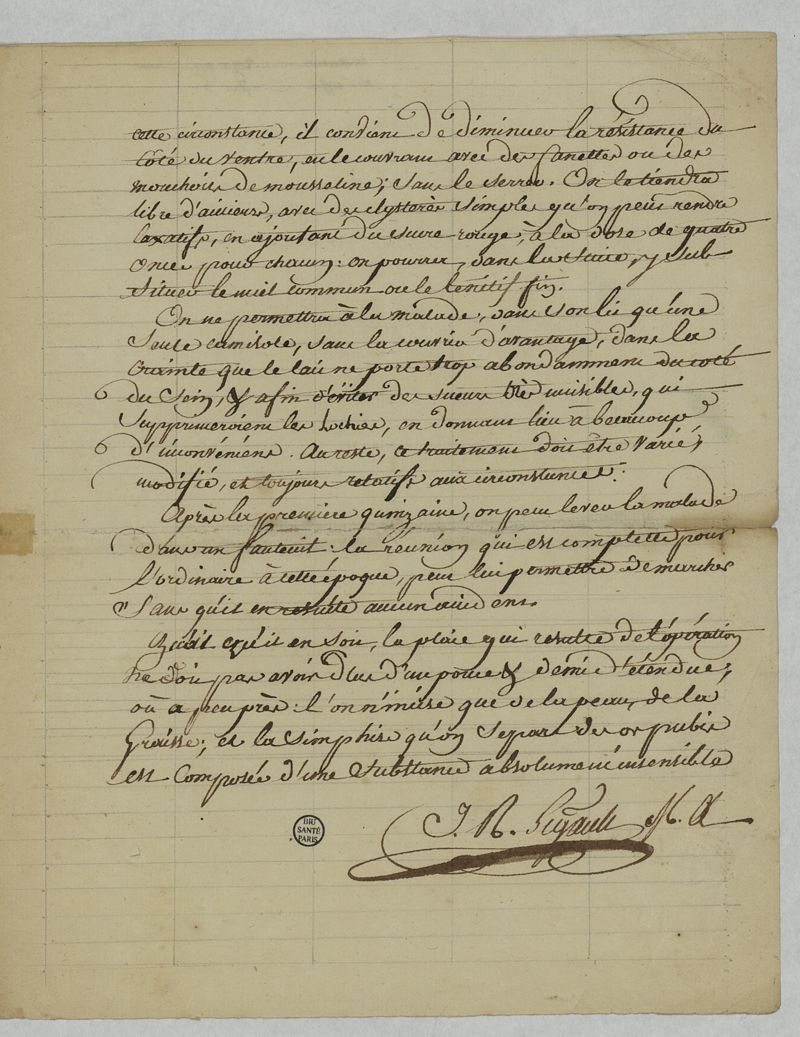 cette circonstance, il convient de diminuer la résistance du
côté du ventre, en le couvrant avec des serviettes ou des
mouchoirs de mousseline; sans le serrer. On le tiendra
libre d'ailleurs, avec des clysteres simples qu'on peut rendre
laxatifs, en ajoutant du sucre rouge, à la dose de quatre
onces pour chacun: on pourra, dans la suite, y sub
stituer le miel commun ou le lénitif fin.
On ne permettra à la malade, dans son lit qu'une
seule camisole, sans la couvrir d'avantage, dans la
crainte que le lait ne porte trop abondamment du coté
du sein, & afin d'éviter des sueurs très nuisibles, qui
supprimeroient les lochies, en donnant lieu à beaucoup
d'inconvéniens. Au reste, ce traitement doit être varié,
modifié, et toujours relatifs aux circonstances.
Après la première quinzaine, on peut lever la malade
dans un fauteuil: la reunion qui est complette pour
l'ordinaire à cette époque, peut lui permettre de marcher
sans qu'il en resulte aucun accident.
Quoi qu'il en soit, la plaie qui resulte de l'opération
ne doit pas avoir plus d'un pouce & demi d'étendue;
où a peu près: l'on n'incise que de la peau, de la
graisse; et la simphise qu'on separe des os pubis
est composée d'une substance absolument insensible
J. R. Sigault
BIU
SANTÉ
PARIS